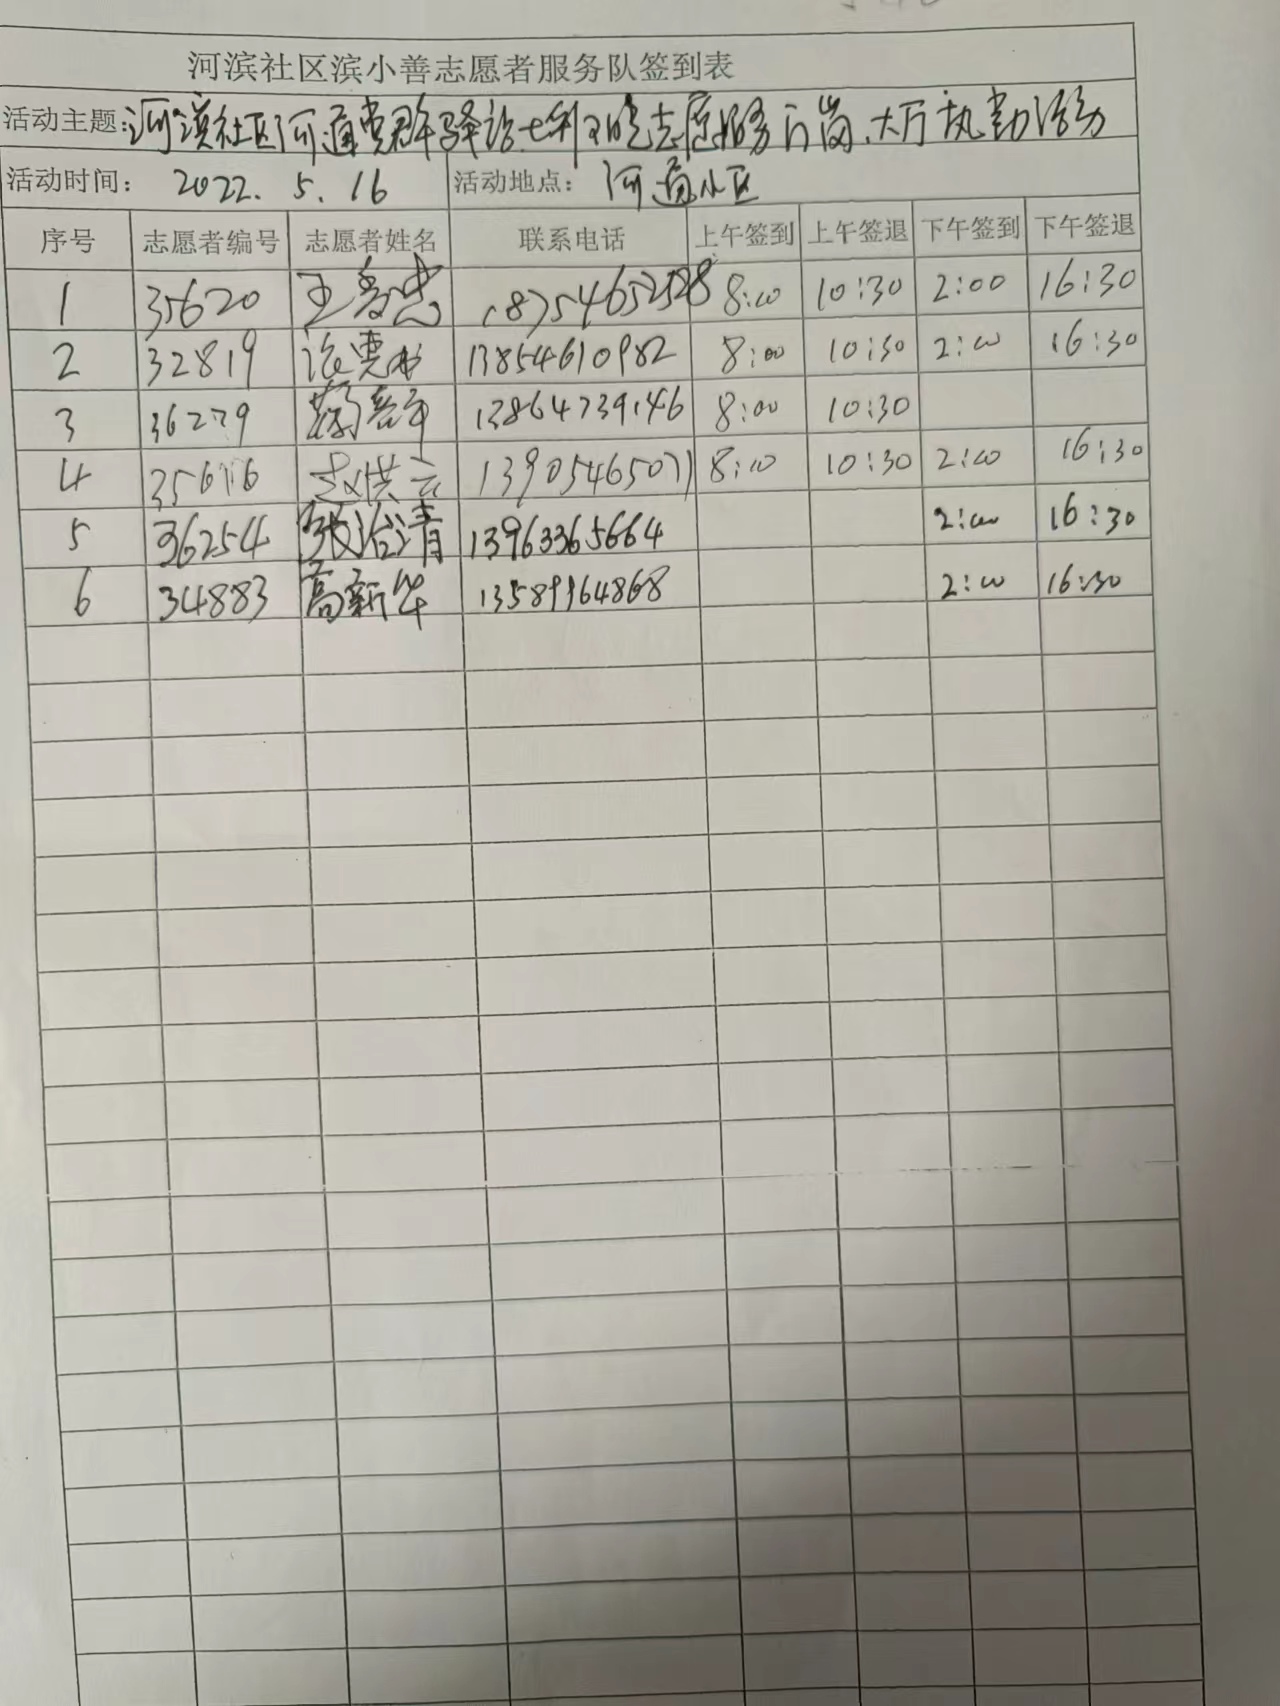 河滨社区滨小善志愿者服务队签到表
活动主题：河滨社区河通党群驿站 志愿服务 岗、大厅执勤活动
活动时间： 2022.5.16 活动地点： 河通小区
序号 志愿者编号 志愿者姓名 联系电话 上午签到 上午签退 下午签到 下午签退
1 35620 王 忠 18754652528 8:00 10:30 2:00 16:30
2 32819 13854610982 8:00 10:30 2:00 16:30
3 36279 13864739146 8:00 10:30
4 35616 赵洪云 13905465071 8:00 10:30 2:00 16:30
5 36254 张治清 13963365664 2:00 16:30
6 34883 高新华 13589964868 2:00 16:30